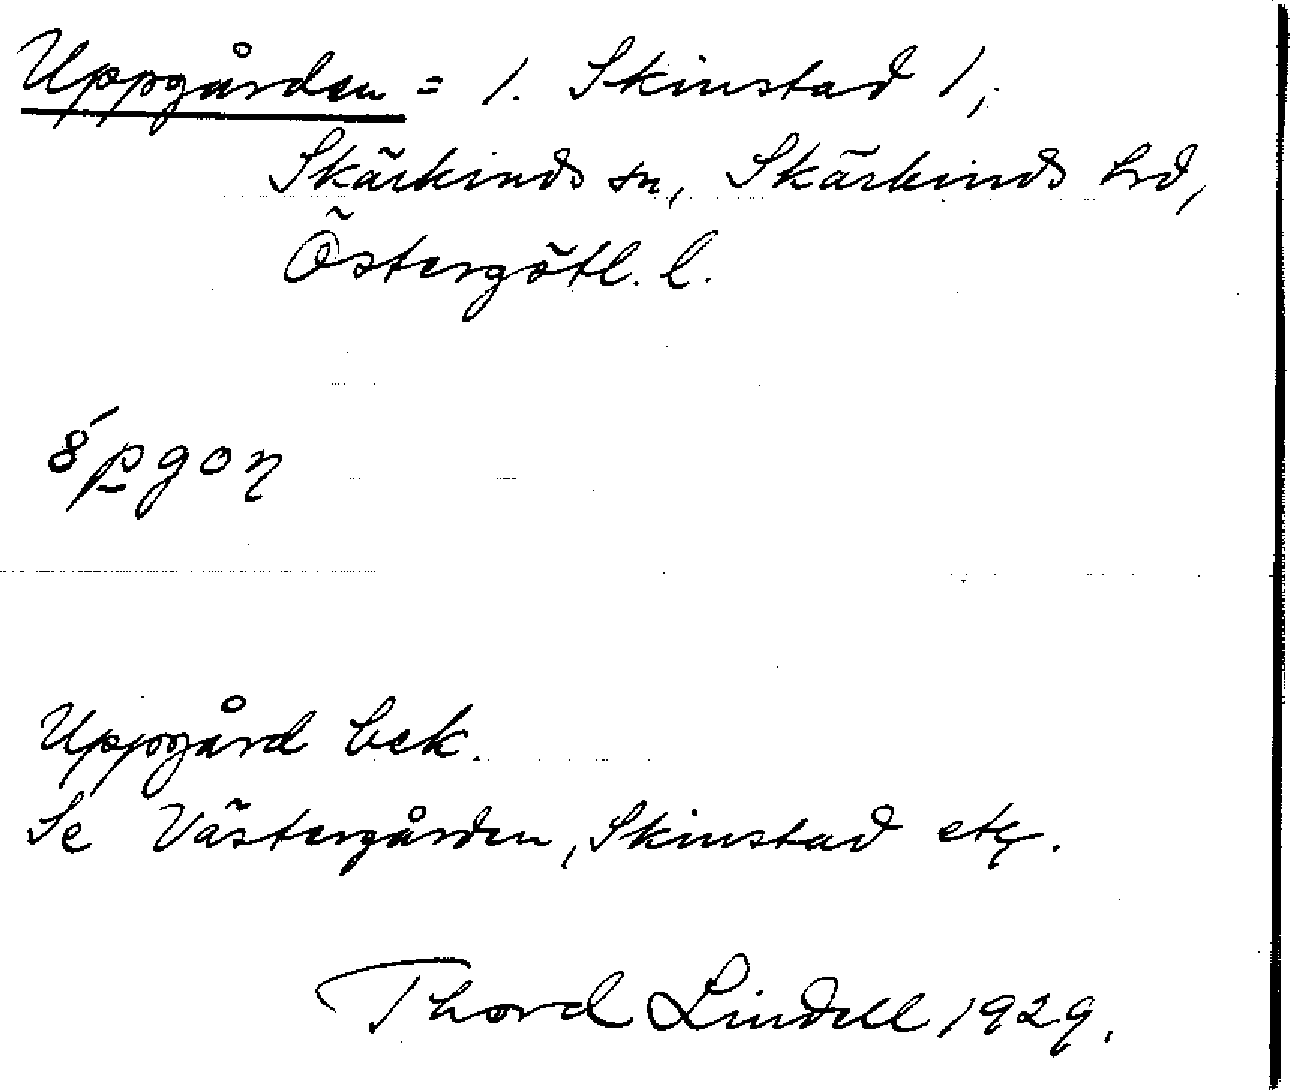 Uppgården = 1. Skinstad 1,
Skärkinds sn, Skärkinds hd,
Östergötl. l.
Uppgård bek.
Se Västergården, Skinstad etc.
Thord Lindell 1929.